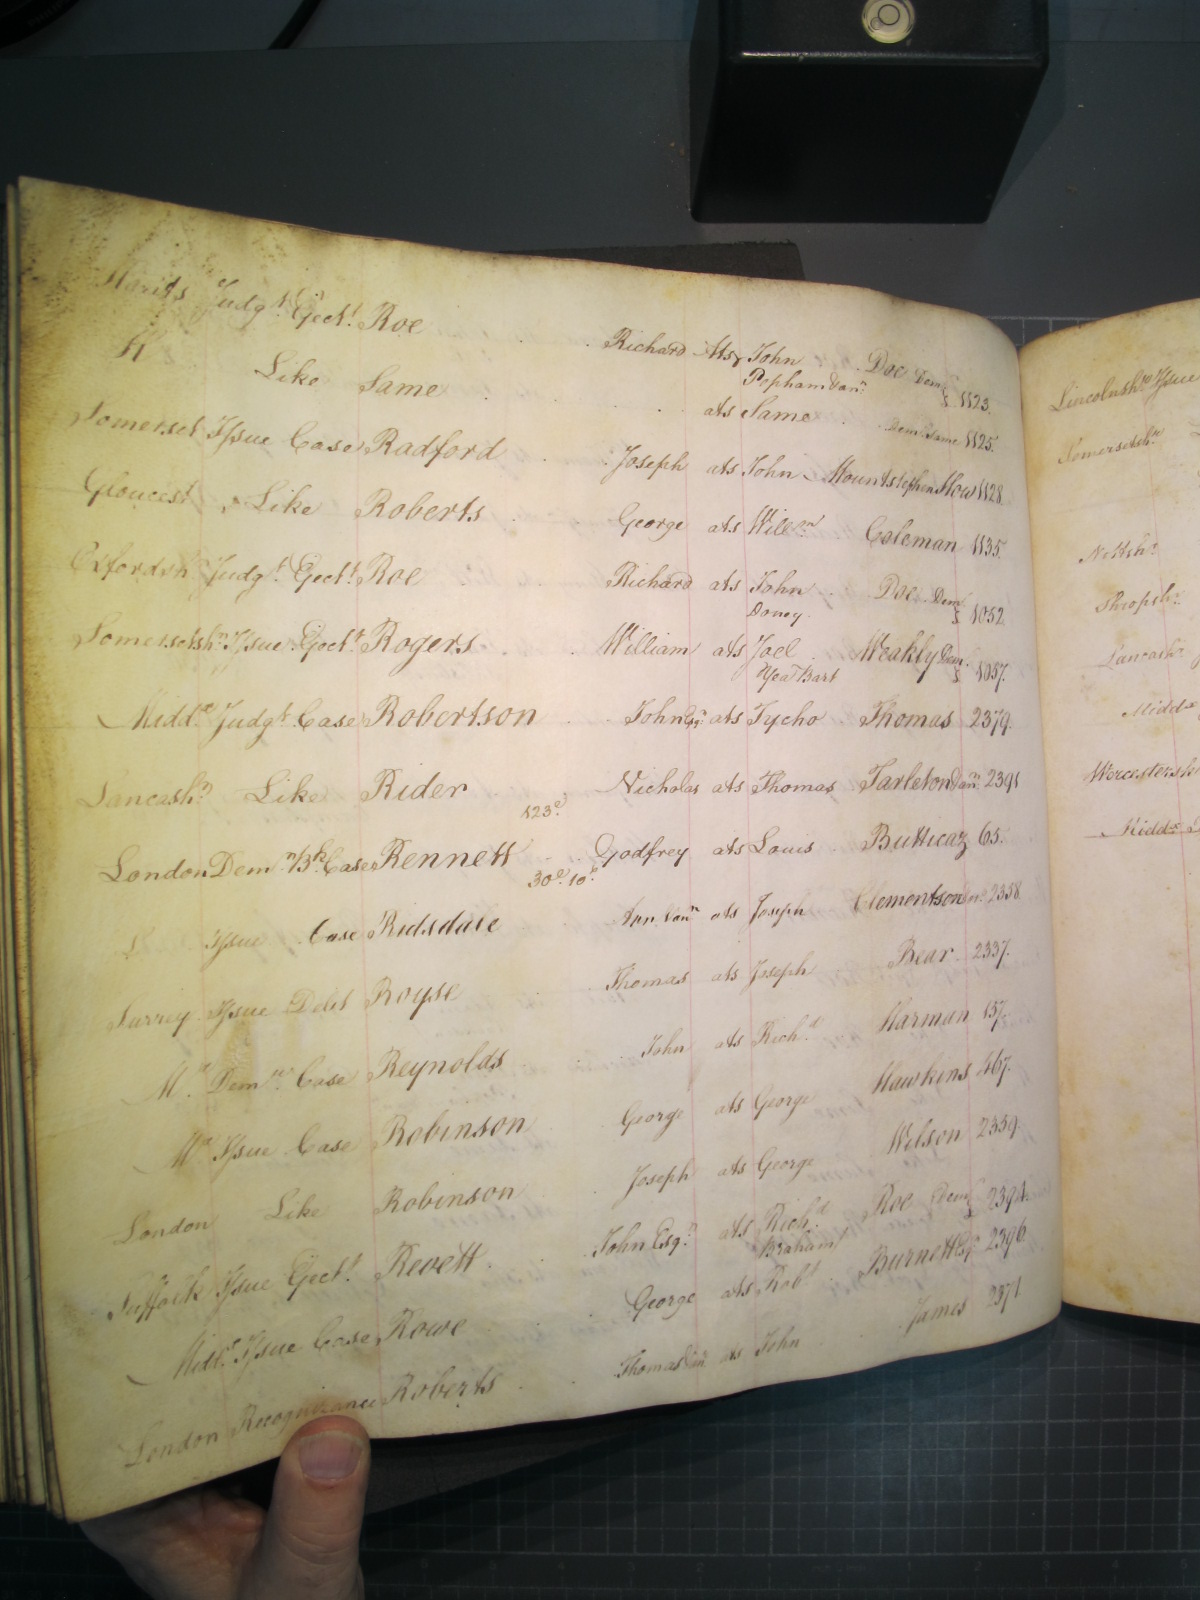 Judgt Eject Roe Richard Ats John Doe Dem 1123.
Popham Dann
Like Same ats Same Dem Same 1125.
Somerset Issue Case Radford Joseph ats John Mountstephen How 1128
Gloucest Like Roberts George ats Willm Coleman 1135.
Oxfordsh Judgt Eject Roe Richard ats John Doe Dem 1052
Doney
Somersetshr Issue Eject Rogers William ats Joel Weakly Dem 1057.
Yea Bart
Middx Judgt Case Robertson John Esqr ats Tycho Thomas 2379.
Lancashr Like Rider Nicholas ats Thomas Tarleton Dann 2391
123d
London Demr Case Rennett Godfrey ats Louis Butticaz 65.
30d. 10
L Issue Case Ridsdale Ann Dann ats Joseph Clementson 2338
Surrey Issue Debt Royse Thomas ats Joseph Bear 2337.
Mx Demr Case Reynolds John ats Richd Harman 157.
Mx Issue Case Robinson George ats George Hawkins 467.
London Like Robinson Joseph ats George Wilson 2339.
Suffolk Issue Eject Revett John Esqr ats Richd Roe Dem 2394
Braham
Middx Issue Case Rowe George ats Robt Burnett Esqr 2396
London Recognizance Roberts Thomas Dann ats John James 2371
Lincolnshre Issue
Somersetshr
Shropshr
Lancashr
Middx
Worcestersh
Middx